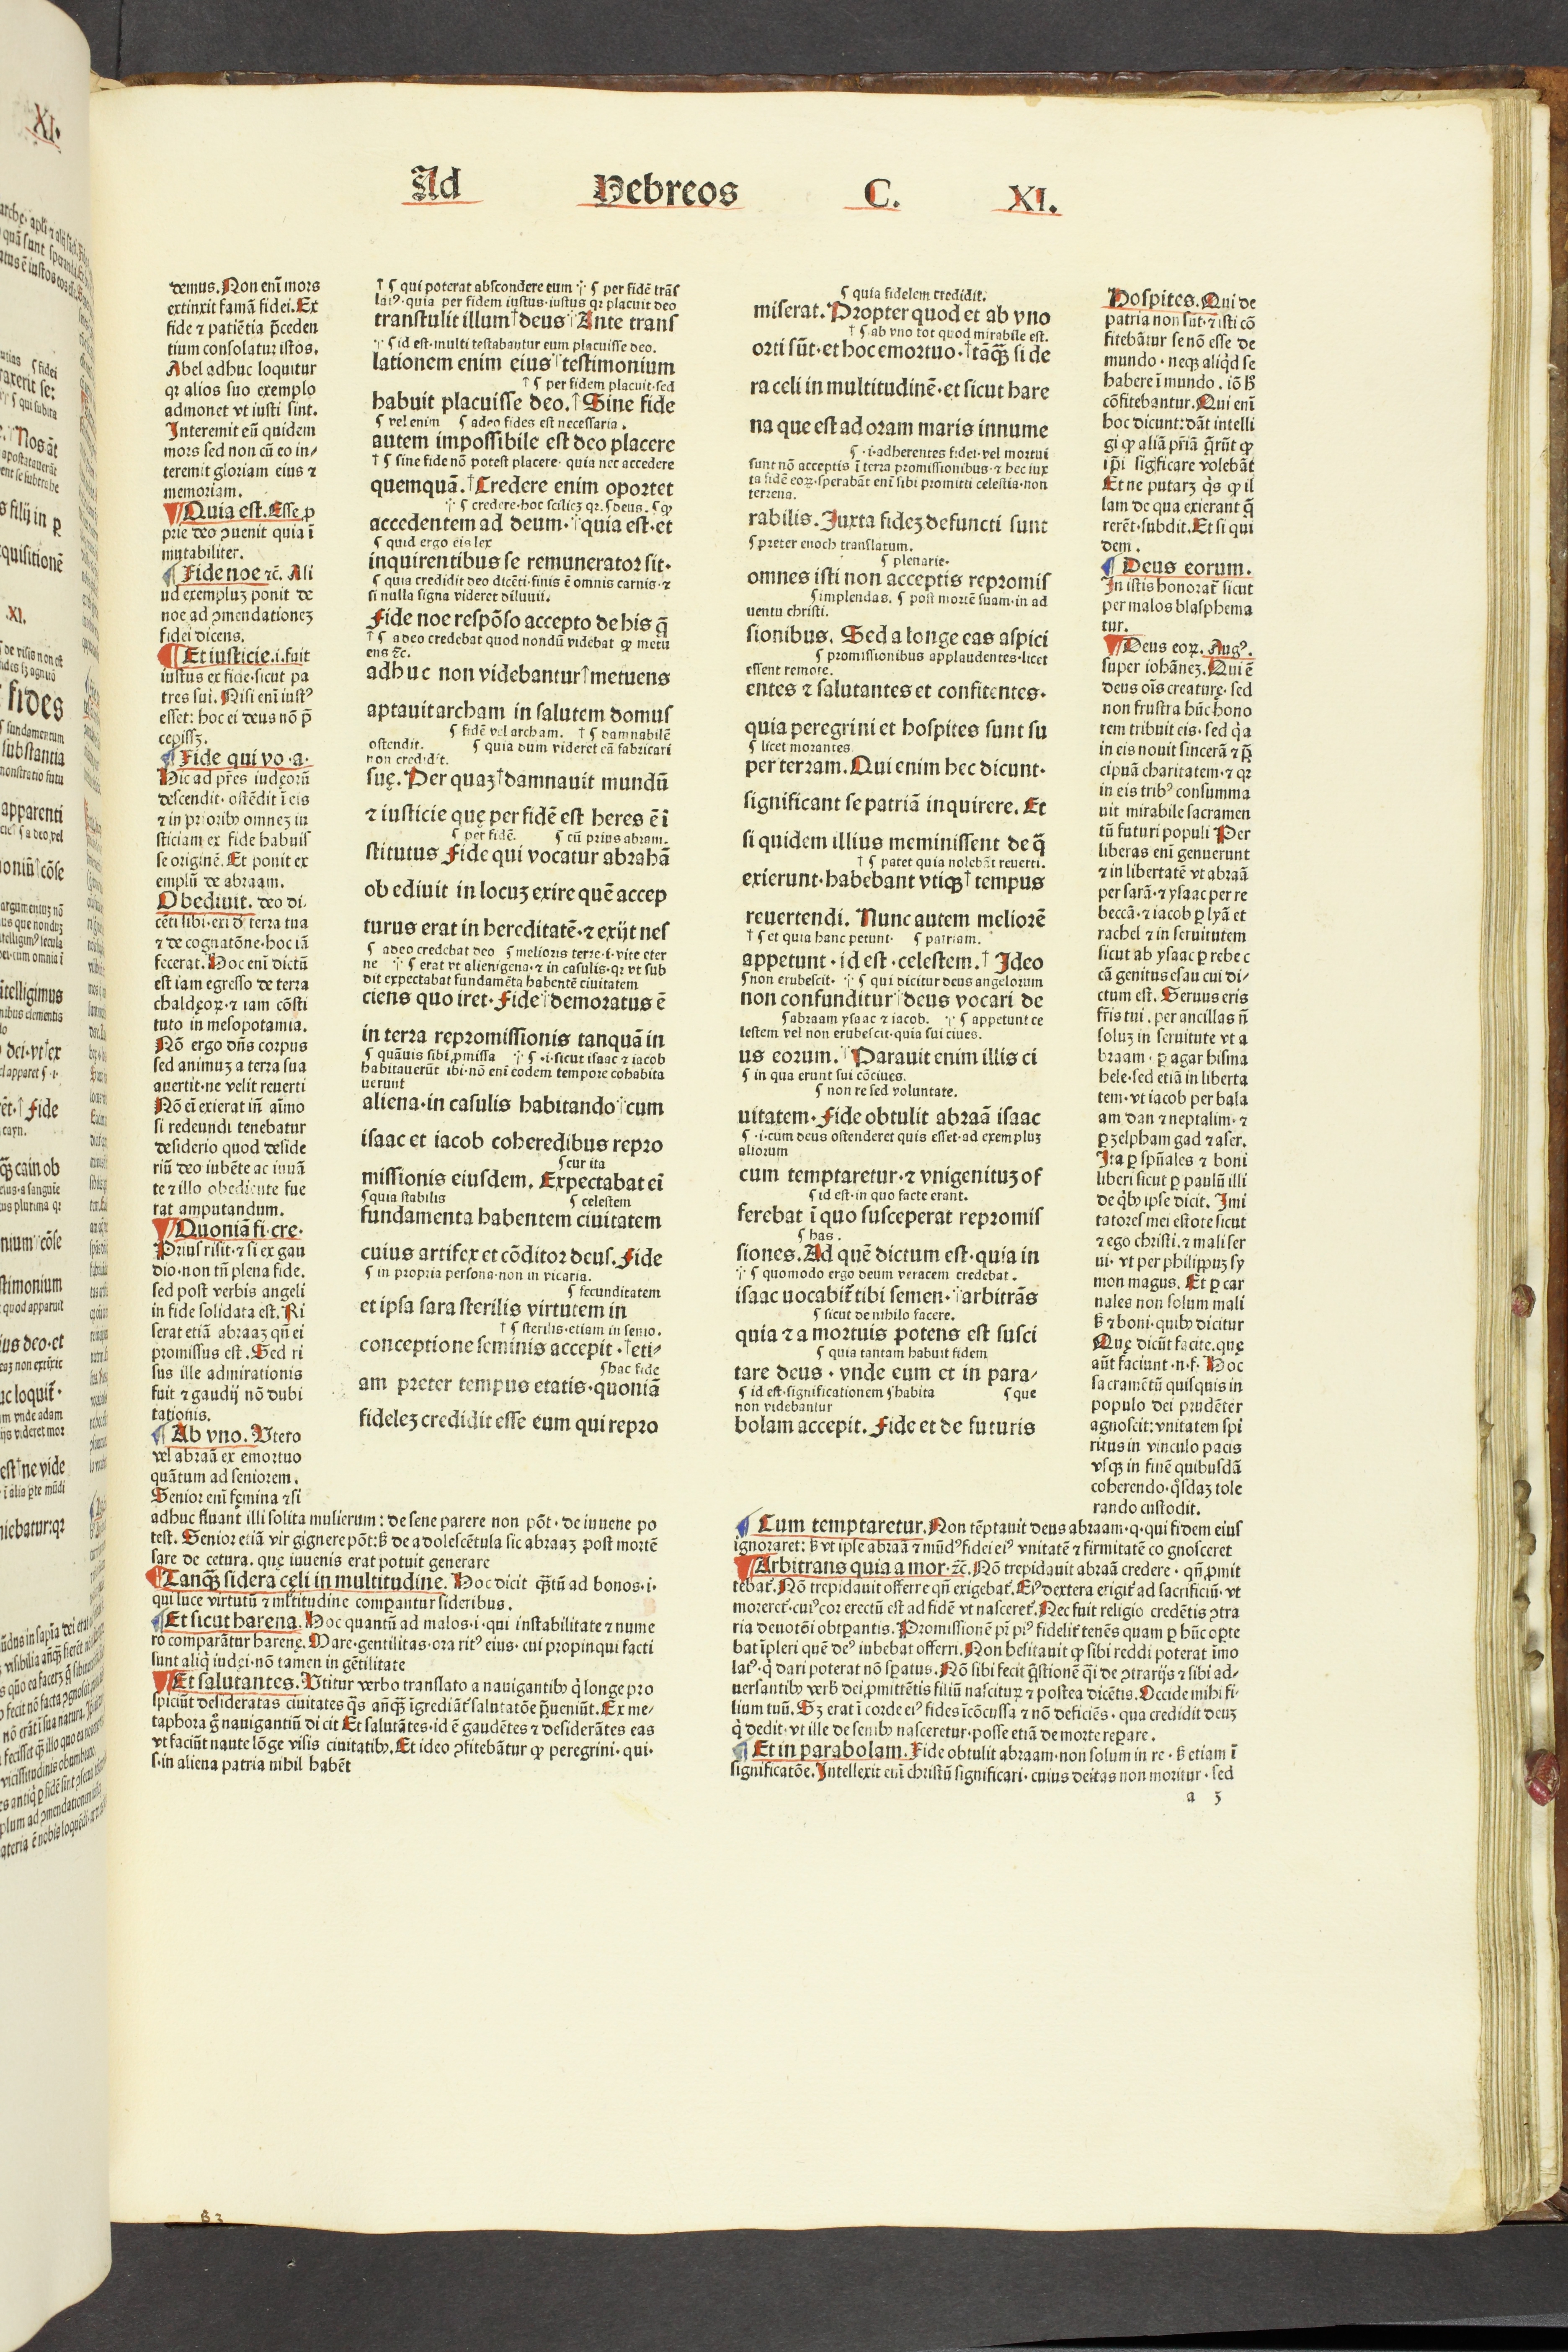 Ad Hebreos C. XI.
demus. Non eni mors
extinxit famã fidei. Ex
fide ⁊ patiẽtia p̃ceden
tium consolatur istos.
Abel adhuc loquitur
qꝛ alios suo exemplo
admonet vt iusti sint.
Interemit eũ quidem
mors sed non cũ eo in/
teremit gloriam eius ⁊
memoriam.
Quia est. Esse ꝓ
prie deo ꝯuenit quia ĩ
mutabiliter.
Fide noe ⁊c̃. Ali
ud exempluꝫ ponit de
noe ad ꝯmendationeꝫ
fidei dicens.
Et iusticie .i. fuit
iustus ex fide·sicut pa
tres sui. Nisi enĩ iustꝰ
esset: hoc ei deus nõ p̃
cepissꝫ.
Fide qui vo·a·
Hic ad pr̃es iudęorũ
descendit·ostẽdit ĩ eis
⁊ in prioribꝫ omneꝫ iu
sticiam ex fide habuis
se originẽ. Et ponit ex
emplũ de abraam.
Obediuit. deo di-
cẽti sibi·exi đ terra tua
⁊ de cognatõne·hoc iã
fecerat. Hoc enĩ dictũ
est iam egresso de terra
chaldęoꝝ·⁊ iam cõsti
tuto in mesopotamia.
Nõ ergo dñs corpus
sed animuꝫ a terra sua
auertit·ne velit reuerti
Nõ eĩ exierat iñ aĩmo
si redeundi tenebatur
desiderio quod deside
riũ deo iubẽte ac iuuã
te ⁊ illo obediente fue
rat amputandum.
Quoniã fi·cre·
Prius risit·⁊ si ex gau
dio·non tñ plena fide.
sed post verbis angeli
in fide solidata est. Ri
serat etiã abraaꝫ qñ ei
promissus est. Sed ri
sus ille admirationis
fuit ⁊ gaudij nõ dubi
tationis.
Ab vno. Utero
vel abraã ex emortuo
quãtum ad seniorem.
Senior enĩ fęmina ⁊si
adhuc fluant illi solita mulierum: de sene parere non põt·de iuuene po
test. Senior etiã vir gignere põt: ß de adolescẽtula sic abraaꝫ post mortẽ
sare de cetura. quę iuuenis erat potuit generare
Tanqꝫ sidera cęli in multitudine. Hoc dicit qꝫtũ ad bonos·i·
qui luce virtutũ ⁊ ml̃titudine comꝑantur sideribus.
Et sicut harena. Hoc quantũ ad malos·i·qui instabilitate ⁊ nume
ro comparãtur harenę. Mare·gentilitas·ora ritꝰ eius·cui propinqui facti
sunt aliq̃ iudęi·nõ tamen in gẽtilitate
Et salutantes. Utitur verbo translato a nauigantibꝫ q̃ longe pro
spiciũt desideratas ciuitates q̃s añqꝫ ĩgrediãt̃ salutatõe p̃ueniũt. Ex me-
taphora g̃ nauigantiũ dicit Et salutãtes·id ẽ gaudẽtes ⁊ desiderãtes eas
vt faciũt naute lõge visis ciuitatibꝫ. Et ideo ꝯfitebãtur ꝙ peregrini·qui·
s·in aliena patria nihil habẽt
† ς qui poterat abscondere eum ·/· ς per fidẽ trãs
latꝰ·quia per fidem iustus·iustus qꝛ placuit deo
transtulit illum†deus Ante trans
·/· ς id est·multi testabantur eum placuisse deo.
lationem enim eius testimonium
† ς per fidem placuit·sed
habuit placuisse deo.† Sine fide
ς vel enim ς adeo fides est necessaria.
autem impossibile est deo placere
† ς sine fide nõ potest placere·quia nec accedere
quemquã.† Credere enim oportet
·/· ς credere·hoc sciliceꝫ qꝛ. ς deus. ς ꝙ
accedentem ad deum· quia est·et
ς quid ergo eis lex
inquirentibus se remunerator sit·
ς quia credidit deo dicẽti·finis ẽ omnis carnis·⁊
si nulla signa videret diluuii.
Fide noe respõso accepto de his q̃
† ς adeo credebat quod nondũ videbat ꝙ metu
ens ⁊c̃.
adhuc non videbantur†metuens
aptauit archam in salutem domus
ς fidẽ vel archam. † ς damnabilẽ
ostendit. ς quia dum videret eã fabricari
non credidit.
suę. Per quaꝫ†damnauit mundũ
⁊ iusticie quę per fidẽ est heres ẽ ĩ
ς per fidẽ. ς cũ prius abram.
stitutus Fide qui vocatur abrahã
obediuit in locuꝫ exire quẽ accep
turus erat in hereditatẽ·⁊ exijt nes
ς adeo credebat deo ς melioris terre·i·vite eter
ne ·/· ς erat vt alienigena·⁊ in casulis·qꝛ vt sub
dit expectabat fundamẽta habentẽ ciuitatem
ciens quo iret· Fide demoratus ẽ
in terra repromissionis tanquã in
ς quãuis sibi ꝓmissa ·/· ς ·i·sicut isaac ⁊ iacob
habitauerũt ibi·nõ enĩ eodem tempore cohabita
uerunt
aliena·in casulis habitando cum
isaac et iacob coheredibus repro
ς cur ita
missionis eiusdem. Expectabat eĩ
ς quia stabilis ς celestem
fundamenta habentem ciuitatem
cuius artifex et cõditor deus. Fide
ς in propria persona·non in vicaria.
ς fecunditatem
et ipsa sara sterilis virtutem in
† ς sterilis·etiam in senio.
conceptione seminis accepit·†eti-
ς hac fide
am preter tempus etatis·quoniã
fideleꝫ credidit esse eum qui repro
ς quia fidelem credidit.
miserat. Propter quod et ab vno
† ς ab vno tot quod mirabile est.
orti sũt·et hoc emortuo·†tãqꝫ si de
ra celi in multitudinẽ·et sicut hare
na que est ad oram maris innume
ς ·i·adherentes fidei·vel mortui
sunt nõ acceptis ĩ terra promissionibus·⁊ hec iux
ta fidẽ eoꝝ·sperabãt enĩ sibi promitti celestia·non
terrena.
rabilis. Juxta fideꝫ defuncti sunt
ς preter enoch translatum.
ς plenarie·
omnes isti non acceptis repromis
ς implendas. ς post mortẽ suam·in ad
uentu christi.
sionibus. Sed a longe eas aspici
ς promissionibus applaudentes·licet
essent remote.
entes ⁊ salutantes et confitentes·
quia peregrini et hospites sunt su
ς licet morantes
per terram. Qui enim hec dicunt·
significant se patriã inquirere. Et
si quidem illius meminissent de q̃
† ς patet quia nolebãt reuerti.
exierunt·habebant vtiqꝫ†tempus
reuertendi. Nunc autem meliorẽ
† ς et quia hanc petunt· ς patriam.
appetunt·id est·celestem.† Ideo
ς non erubescit· ·/· ς qui dicitur deus angelorum
non confunditur deus vocari de
ς abraam ysaac ⁊ iacob. ·/· ς appetunt ce
lestem vel non erubescit·quia sui ciues.
us eorum. Parauit enim illis ci
ς in qua erunt sui cõciues.
ς non re sed voluntate.
uitatem· Fide obtulit abraã isaac
ς ·i·cum deus ostenderet quis esset·ad exempluꝫ
aliorum
cum temptaretur·⁊ vnigenituꝫ of
ς id est·in quo facte erant.
ferebat ĩ quo susceperat repromis
ς has.
siones. Ad quẽ dictum est·quia in
·/· ς quomodo ergo deum veracem credebat.
isaac uocabit̃ tibi semen· arbitrãs
ς sicut de nihilo facere.
quia ⁊ a mortuis potens est susci
ς quia tantam habuit fidem
tare deus·vnde eum et in para/
ς id est·significationem ς habita ς que
non videbantur
bolam accepit. Fide et de futuris
Hospites. Qui de
patria non sũt·⁊ isti cõ
fitebãtur se nõ esse de
mundo·neqꝫ aliqd se
habere ĩ mundo. iõ ß
cõfitebantur. Qui enĩ
hoc dicunt: dãt intelli
gi ꝙ aliã pr̃iã q̃rũt ꝙ
ip̃i significare volebãt
Et ne putarꝫ q̃s ꝙ il
lam de qua exierant q̃
rerẽt·subdit. Et si qui
dem.
Deus eorum.
In istis honorat̃ sicut
per malos blasphema
tur.
Deus eoꝝ. Augꝰ.
super iohãneꝫ. Qui ẽ
deus oĩs creature·sed
non frustra hũc hono
rem tribuit eis·sed q̃a
in eis nouit sincerã ⁊ p̃
cipuã charitatem·⁊ qꝛ
in eis tribꝰ consumma
uit mirabile sacramen
tũ futuri populi Per
liberas enĩ genuerunt
⁊ in libertatẽ vt abraã
per sarã·⁊ ysaac per re
beccã·⁊ iacob ꝑ lyã et
rachel ⁊ in seruitutem
sicut ab ysaac ꝑ rebec
cã genitus esau cui di/
ctum est. Seruus eris
fr̃is tui. per ancillas ñ
soluꝫ in seruitute vt a
braam·ꝑ agar hisma
hele·sed etiã in liberta
tem·vt iacob per bala
am dan ⁊ neptalim·⁊
ꝑ ꝫelpham gad ⁊ aser.
Ita ꝑ spũales ⁊ boni
liberi sicut ꝑ paulũ illi
de q̃bꝫ ipse dicit. Imi
tatores mei estote sicut
⁊ ego christi·⁊ mali ser
ui·vt per philippuꝫ sy
mon magus. Et ꝑ car
nales non solum mali
ß ⁊ boni·quibꝫ dicitur
Quę dicũt facite·quę
aũt faciunt·n·f· Hoc
sacramẽtũ quisquis in
populo dei prudẽter
agnoscit: vnitatem spi
ritus in vinculo pacis
vsqꝫ in finẽ quibusdã
coherendo·q̃sdaꝫ tole
rando custodit.
Cum temptaretur. Non tẽptauit deus abraam·q·qui fidem eius
ignoraret: ß vt ipse abraã ⁊ mũdꝰ fidei eiꝰ vnitatẽ ⁊ firmitatẽ cognosceret
Arbitrans quia a mor·⁊c̃. Nõ trepidauit abraã credere·qñ ꝓmit
tebat̃. Nõ trepidauit offerre qñ exigebat̃. Eiꝰ dextera erigit̃ ad sacrificiũ·vt
moreret̃·cuiꝰ cor erectũ est ad fidẽ vt nasceret̃. Nec fuit religio credẽtis ꝯtra
ria deuotõi obtꝑantis. Promissionẽ pr̃ piꝰ fidelit̃ tenẽs quam ꝑ hũc oꝑte
bat ĩpleri quẽ deꝰ iubebat offerri. Non hesitauit ꝙ sibi reddi poterat ĩmo
latꝰ·q̃ dari poterat nõ sꝑatus. Nõ sibi fecit q̃stionẽ q̃i de ꝯtrarijs ⁊ sibi ad-
uersantibꝫ verß dei ꝓmittẽtis filiũ nasciturꝫ ⁊ postea dicẽtis. Occide mihi fi-
lium tuũ. Sꝫ erat ĩ corde eiꝰ fides ĩcõcussa ⁊ nõ deficiẽs·qua credidit deuꝫ
q̃ dedit·vt ille de senibꝫ nasceretur·posse etiã de morte reꝑare.
Et in parabolam. Fide obtulit abraam·non solum in re·ß etiam ĩ
significatõe. Intellexit enĩ christũ significari·cuius deitas non moritur·sed
a 5